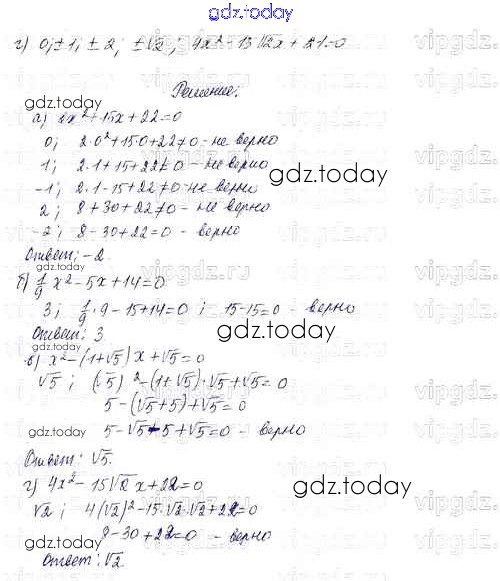 gdz.today
г) 0; ±1; ±2; ±√2; 4x² - 15√2x + 21=0
Решение:
gdz.today
а) 2x² + 15x + 22=0
0; 2·0² + 15·0 + 22≠0 - не верно
1; 2·1 + 15 + 22≠0 - не верно
-1; 2·1 - 15 + 22≠0 - не верно
gdz.today
2; 8 + 30 + 22≠0 - не верно
-2; 8 - 30 + 22=0 - верно
Ответ: -2
gdz.today
б) 1/9 x² - 5x + 14=0
3; 1/9 · 9 - 15 + 14=0; 15-15=0 - верно
Ответ: 3
gdz.today
gdz.today
в) x² - (1+√5)x + √5=0
√5; (√5)² - (1+√5)·√5 + √5=0
5 - (√5+5) + √5=0
gdz.today
5 - √5 - 5 + √5=0 - верно
Ответ: √5.
г) 4x² - 15√2x + 22=0
gdz.today
√2; 4(√2)² - 15·√2·√2 + 22=0
gdz.today
8 - 30 + 22=0 - верно
Ответ: √2
vipgdz.ru